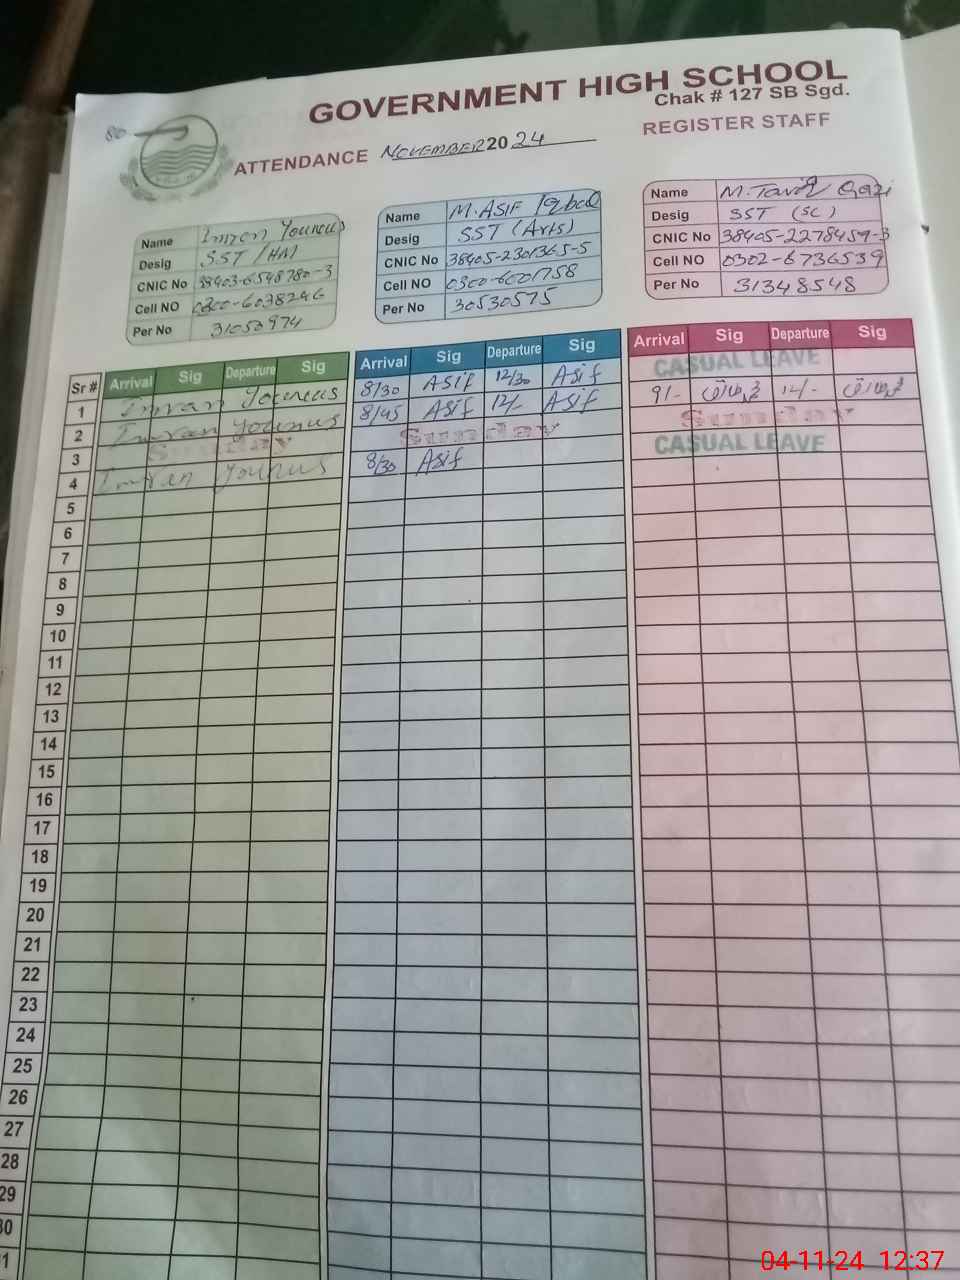 80
GOVERNMENT HIGH SCHOOL
Chak # 127 SB Sgd.
ATTENDANCE NOVEMBER 2024
REGISTER STAFF
Name Imran Younus
Desig SST/HM
CNIC No 38403-6548780-3
Cell NO 0300-6038246
Per No 31050974
Name M.ASIF Iqbal
Desig SST (Arts)
CNIC No 38405-2301365-5
Cell NO 0300-6001758
Per No 30530575
Name M.Tariq Qazi
Desig SST (SC)
CNIC No 38405-2278459-3
Cell NO 0302-6736539
Per No 31348548
Sr # Arrival Sig Departure Sig Arrival Sig Departure Sig Arrival Sig Departure Sig
1 Imran Younus 8/30 ASIF 12/30 Asif CASUAL LEAVE
2 Imran Younus 8/45 Asif 12/- Asif 9/- 12/-
3 Sunday Sunday Sunday
4 Imran Younus 8/30 Asif CASUAL LEAVE
5
6
7
8
9
10
11
12
13
14
15
16
17
18
19
20
21
22
23
24
25
26
27
28
29
30
1
04-11-24 12:37